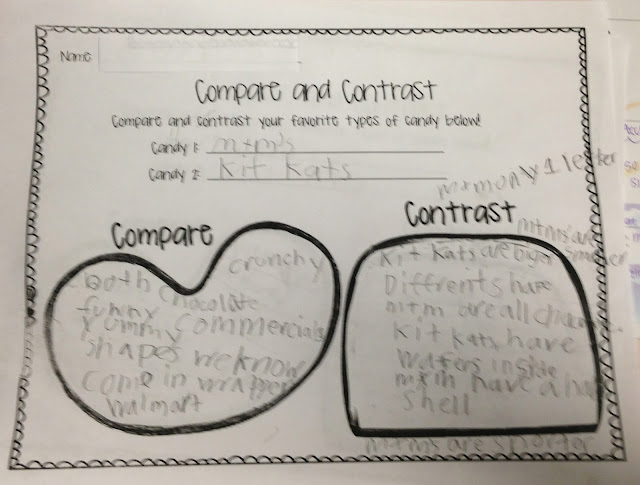 Name
Compare and Contrast
Compare and contrast your favorite types of candy below!
Candy 1: m+m's
Candy 2: Kit Kats
Compare
crunchy
both chocolate
funny commercials
yummy
shapes we know
come in wrapper
Walmart
Contrast
m+m only 1 letter
m+ms are smaller
Kit Kats are biger
Diffrent shape
m+m are all
Kit Kats have
wafers inside
m+m have a
shell
m+ms are shorter